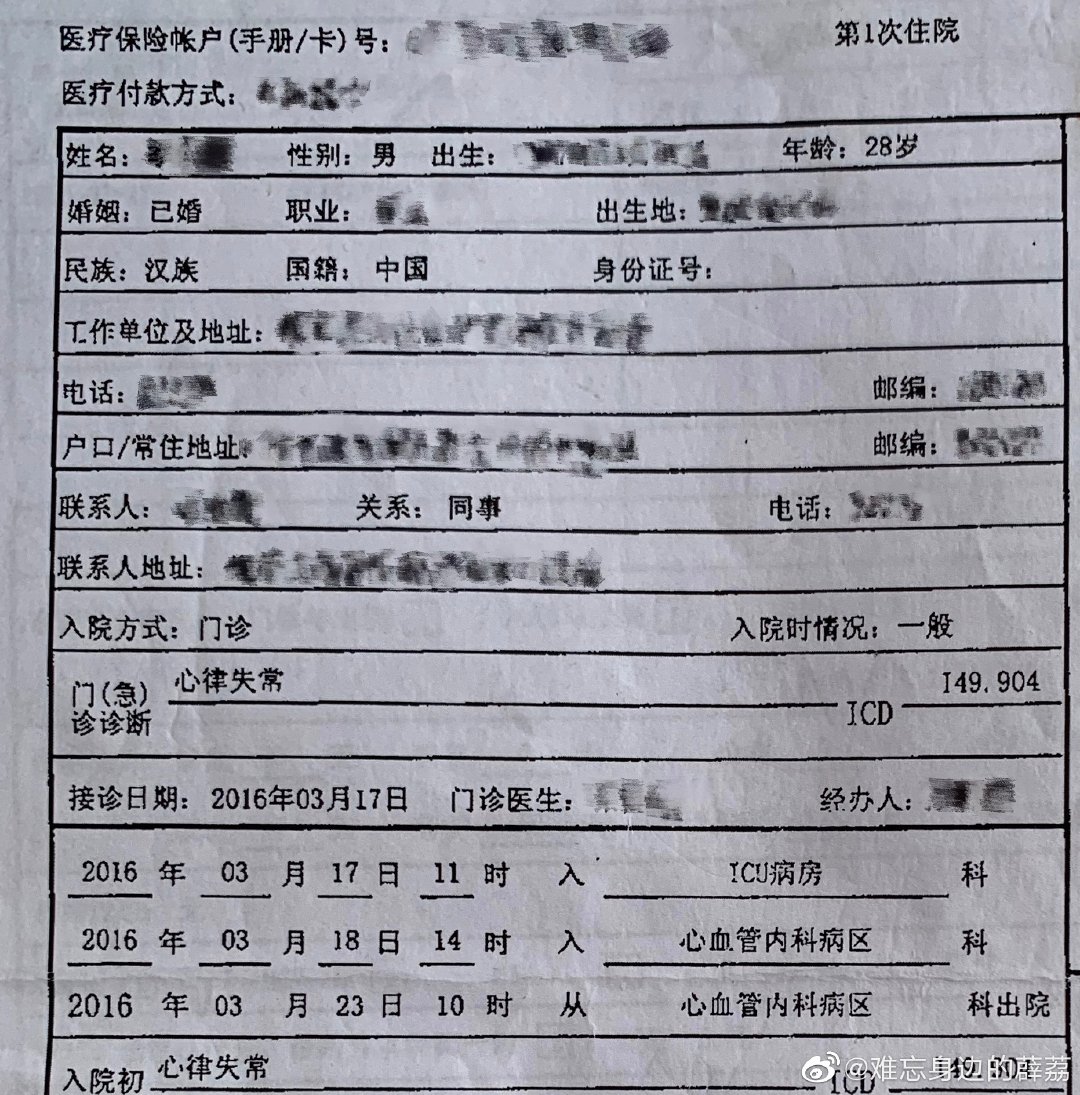 医疗保险帐户(手册/卡)号： 第1次住院
医疗付款方式：
姓名： 性别：男 出生： 年龄：28岁
婚姻：已婚 职业： 出生地：
民族：汉族 国籍：中国 身份证号：
工作单位及地址：
电话： 邮编：
户口/常住地址： 邮编：
联系人： 关系：同事 电话：
联系人地址：
入院方式：门诊 入院时情况：一般
门(急)诊诊断 心律失常 ICD I49.904
接诊日期：2016年03月17日 门诊医生： 经办人：
2016 年 03 月 17 日 11 时 入 ICU病房 科
2016 年 03 月 18 日 14 时 入 心血管内科病区 科
2016 年 03 月 23 日 10 时 从 心血管内科病区 科出院
入院初 心律失常 ICD
@难忘身边的薜荔